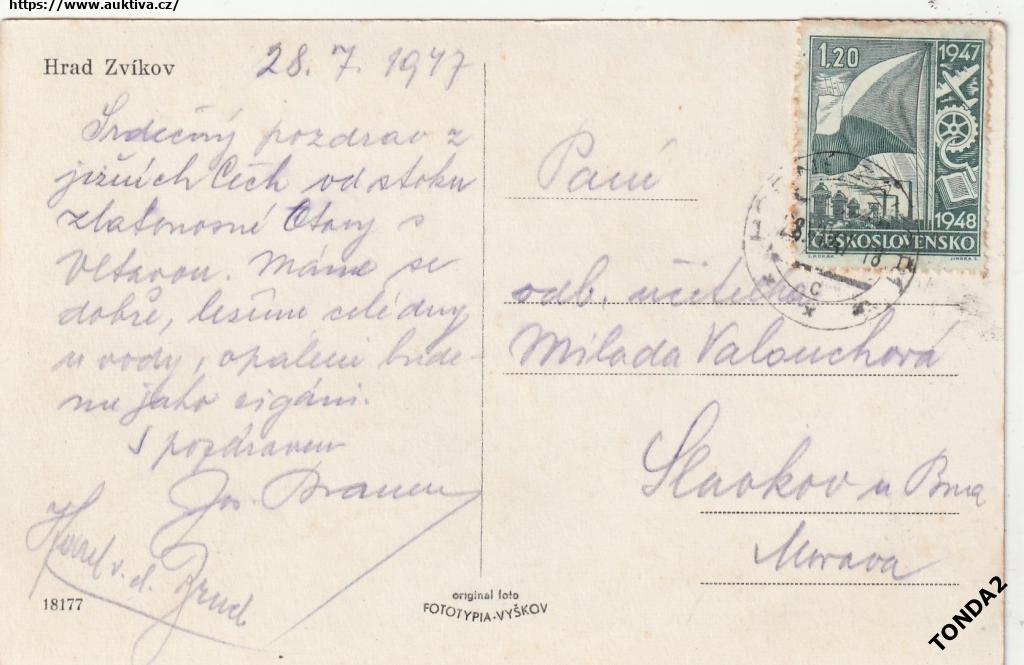 https://www.auktiva.cz/
Hrad Zvíkov
28. 7. 1947
Srdečný pozdrav z
jižních Čech od stoku
zlatonosné Otavy s
Vltavou. Máme se
dobře, lesíme celé dny
u vody, opáleni bude-
me jako cigáni.
S pozdravem
Jos.
18177
original foto
FOTOTYPIA-VYŠKOV
1,20
1947
1948
ČESKOSLOVENSKO
Paní
odb. učitelka
Milada Valouchová
Slavkov u Brna
Morava
TONDA2